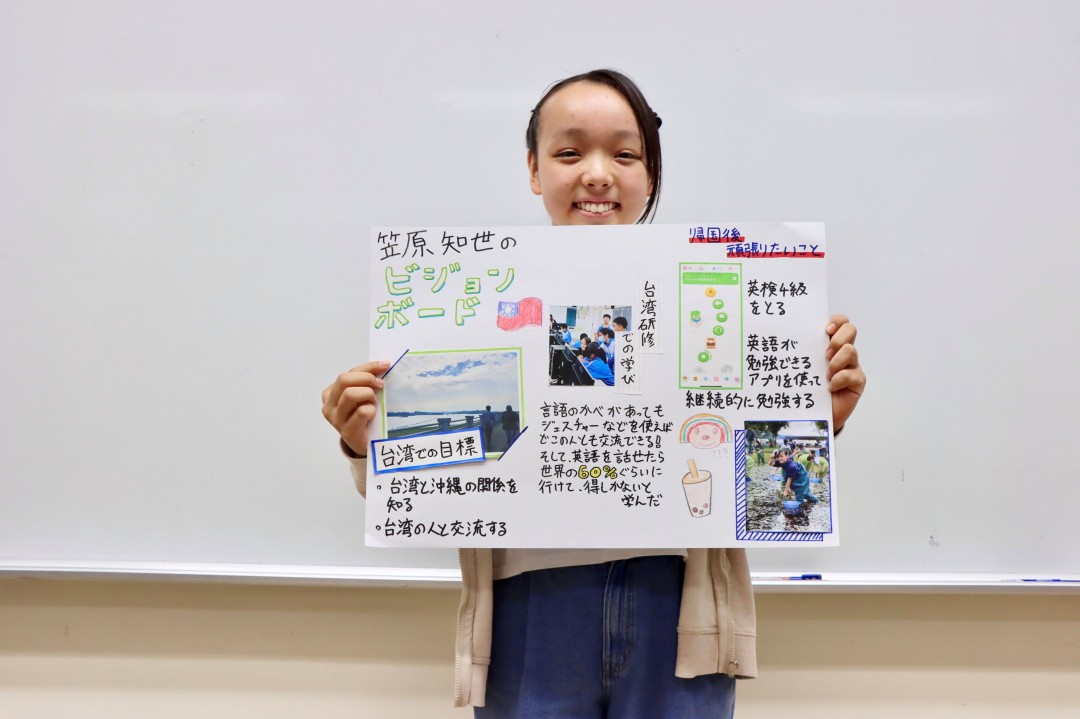 笠原 知世の
ビジョン
ボード
台湾での目標
・台湾と沖縄の関係を
知る
・台湾の人と交流する
台湾研修
での学び
言語のかべがあっても
ジェスチャーなどを使えば
どこの人とも交流できる!!
そして、英語を話せたら
世界の60%ぐらいに
行けて、得しかないと
学んだ
帰国後
頑張りたいこと
英検4級
をとる
英語が
勉強できる
アプリを使って
継続的に勉強する
???